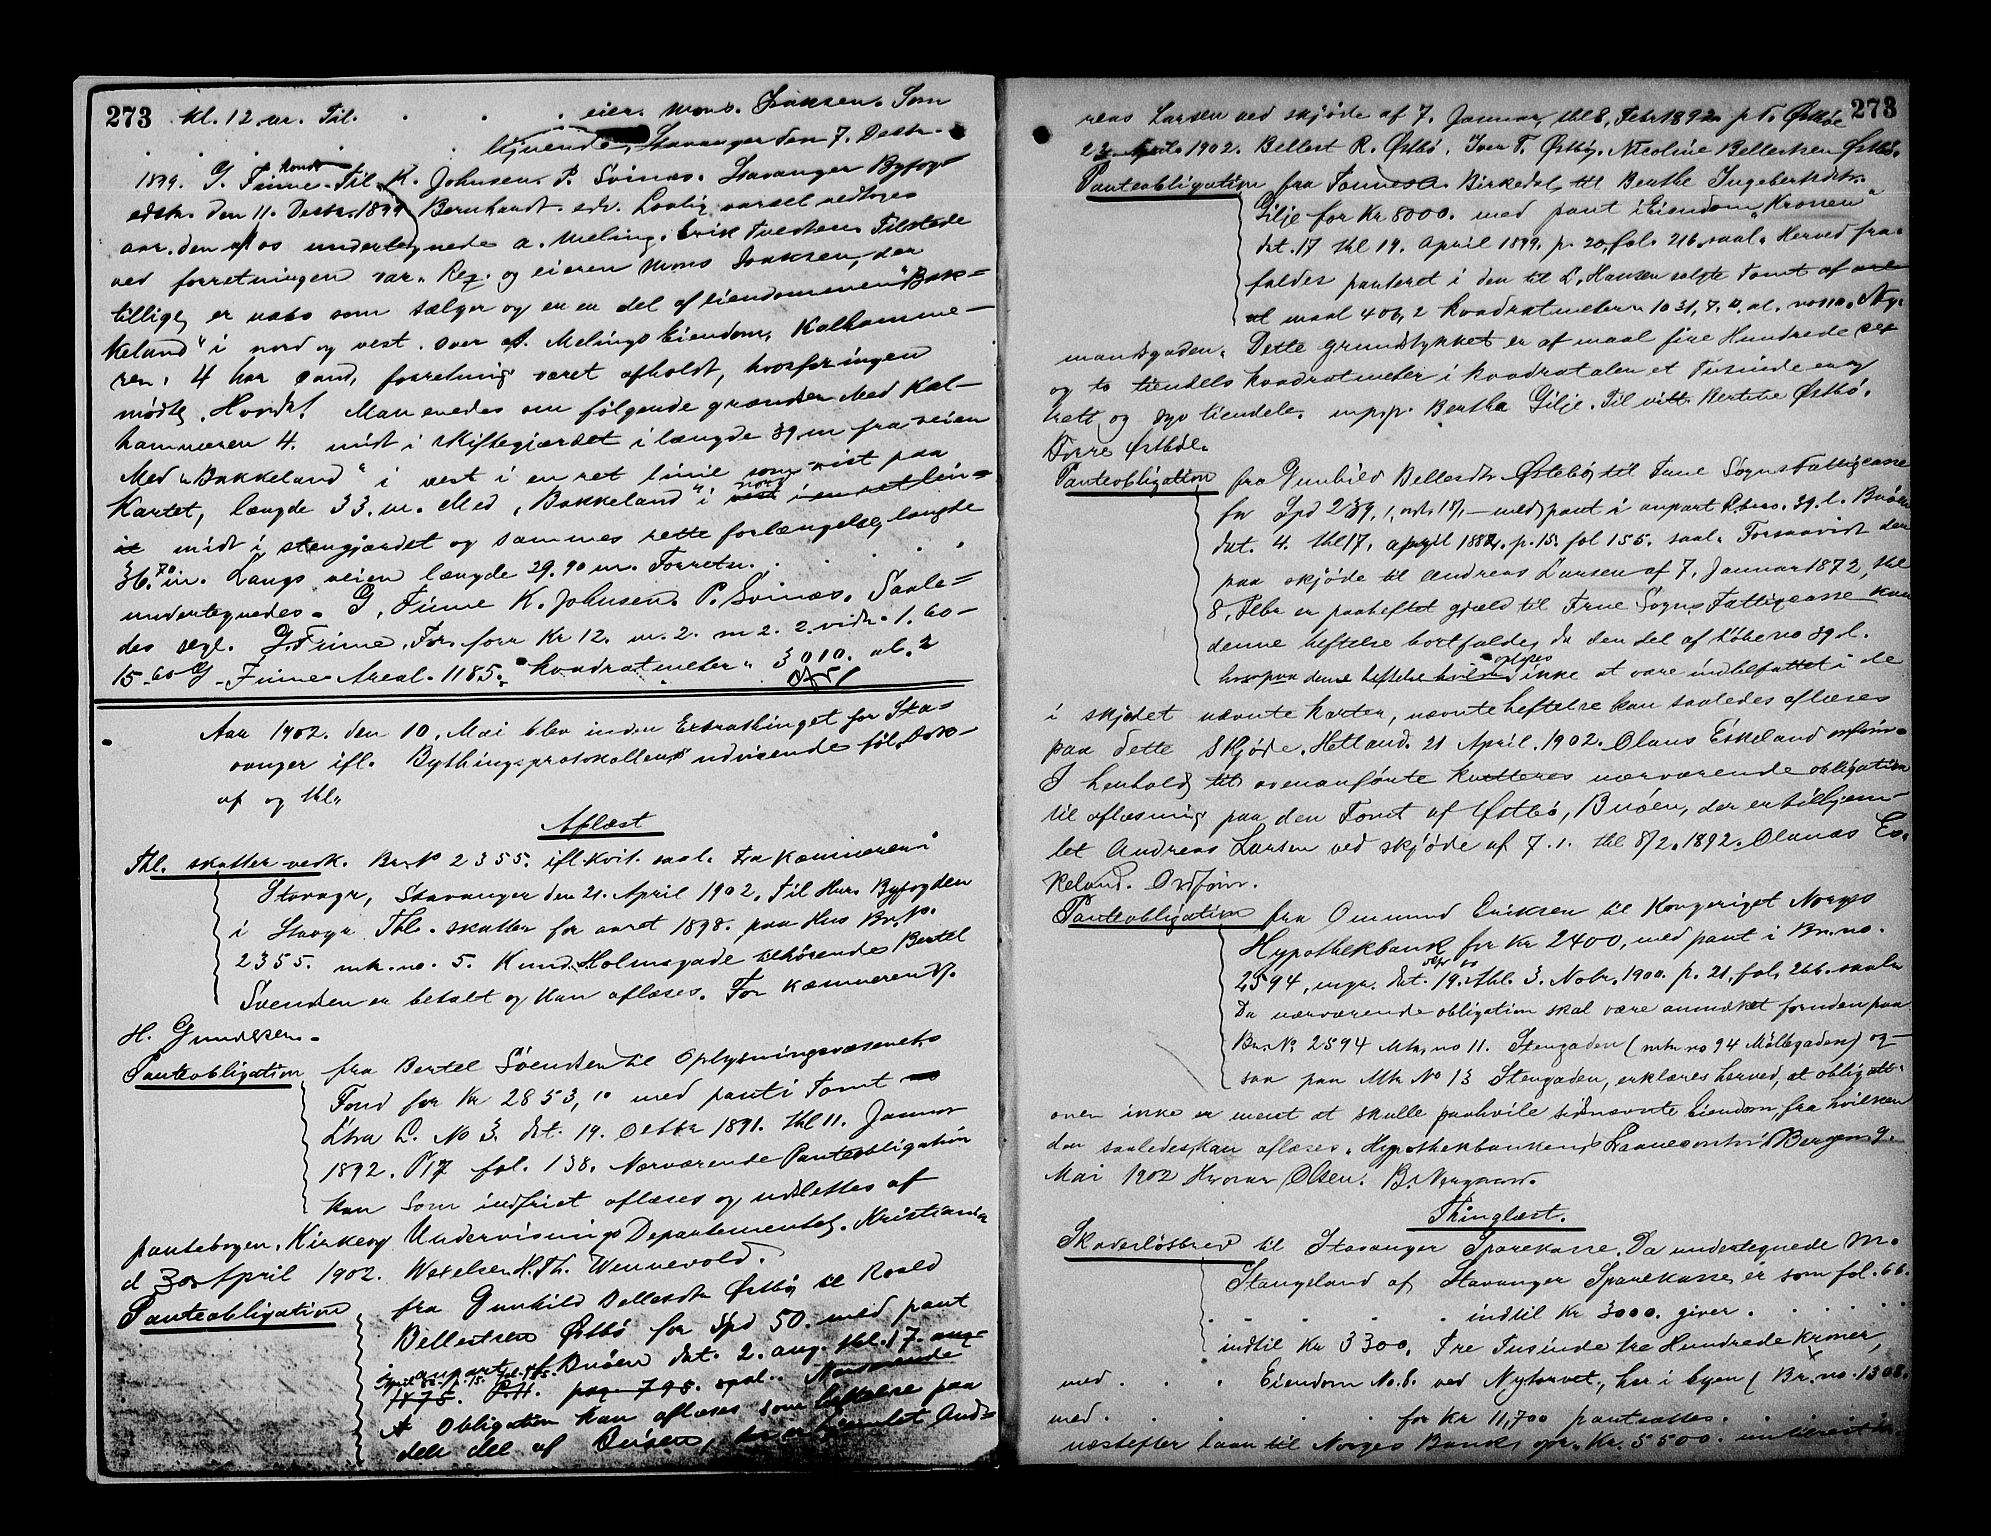 273 kl. 12. m. Til. . . . . eier. Mons. Isaksen. Som
lignende, Stavanger den 7. Decbr.
1899. G. Finne. Til K. Johnsen. P. Svinæs. Stavanger Byfog-
edktr. den 11. Decbr. 1899 Bernhardt. edv. Lovlig varsel vedtoges
aar. den af os undertegnede A. Meling. Erik Tvedten. Tilstede
ved forretningen var. Req. og eieren Mons Isaksen, der
tillige er nabo som sælger og er en del af eiendommen "Bak-
keland" i nord og vest. Sver af. Melings Eiendom, Kalhamme-
ren, 4 har forretning været afholdt, hvorfor ingen
mødte. Hovdet Man enedes om følgende grændser Med Kal-
hammeren 4. midt i skiftegjærdet i længde 39 m fra veien
Med "Bakkeland" i vest i en ret linie som vist paa
Kartet, længde 33. m. Med "Bakkeland" i nord vest i en ret lin-
ie midt i stengjærdet og sammes rette forlængelse længde
36.70 m. Langs veien længde 29.90 m. Forretn. . . . .
undertegnedes. G. Finne K. Johnsen. P. Svinæs. Saale-
des segl. G. Finne. For. forr Kr 12. m. 2. m 2. 2. vidn. 1. 60-
15-60 G. Finne Areal. 1185. kvadratmeter. 3010. al. 2
Aar 1902. den 10. Mai blev inden Extrathinget for Sta-
vanger ifl. Bythingsprotokollens udvisende føl. Dok-
af og thl.
Aflæst
Thl. skatter vedk. Br. No 2355. ifl. kvit. saal. Fra Kæmneren i
Stavgr, Stavanger den 21. April 1902. Til Hus. Byfogden
i Stavgr Thl. skatter for aaret 1898. paa Hus Br. No.
2355. mtr. no. 5. Knud Holmsgade tilhørende Bertel
Svendsen er betalt og kan aflæses. For Kæmneren
H. Gundersen.
Panteobligation fra Bertel Svendsen til Oplysningsvæsenets
Fond for Kr 2853, 10 med pant i Tomt
Litra L. No 3. dat. 19. Octbr 1891. thl 11. Januar
1892. P 17 fol. 138. Nærværende Panteobligation
kan som indfriet aflæses og udslettes af
pantebogen. Kirke og UndervisningsDepartementet. Kristiania
d 30 April 1902. Wexelsen. H. Th. Wennevold.
Panteobligation fra Gunhild Bellesdtr Østbø til Roald
Bellestsen Østbø for Spd 50. med pant
i anpart af Buøen dat. 2. aug. thl. 17. aug.
1875. P. 11. pag 795. saal. Nærværende
Obligation kan aflæses som heftelse paa
den del af Buøen, der er hjemlet And-
273
reas Larsen ved skjøde af 7. Januar, thl 8. Febr 1892. p. t. Østbø
23 April 1902. Bellest R. Østbø. Iver T. Østbø. Nicoline Bellestsen Østbø.
Panteobligation fra Tønnes A. Birkedal til Berthe Ingebertsdtr.
Gilje for Kr 8000. med pant i Eiendom "Kronen"
dat. 17 thl 19. April 1899. p. 20 fol. 216 saal. Herved fra-
faldes panteret i den til L. Hansen solgte Tomt af are-
al maal 406,2 kvadratmeter 1031,7. □ al. Ny-
mandsgaden. Dette grundstykket er af maal fire Hundrede sex
og to tiendels kvadratmeter i kvadratalen et Tusinde en og
trett og syv tiendele. m.p.p. Bertha Gilje. Til vitt. Bertine Østbø.
Torre Østbøe.
Panteobligation fra Gunhild Bellesdtr Østebø til Frue Sogns Fattigcasse
for Spd 239, 1, ort. 18, — med pant i anpart Lbno. 39. l. Buøen
dat. 4. thl 17. april 1882. p. 15. fol 155. saal. Forsaavidt den
paa skjøde til Andreas Larsen af 7. Januar 1872, thl
8. Febr er paaheftet gjæld til Frue Sogns Fattigcasse kan
denne heftelse bortfalde, da den del af Løbeno 39 l.
hvorpaa denne heftelse hviler oplyses ikke at være indbefattet i de
i skjødet nævnte karter, nævnte heftelse kan saaledes aflæses
paa dette Skjøde. Hetland. 21 April. 1902. Olaus Eskeland ordfør.
I henhold til ovenanførte kvitteres nærværende obligation
til aflæsning paa den Tomt af Østbø, Buøen, der er tilhjem-
let Andreas Larsen ved skjøde af 7. 1. thl 8/2. 1892. Olaus Es-
keland. Ordfører.
Panteobligation fra Ommund Eriksen til Kongeriget Norges
Hypothekbank for Kr 2400, med pant i Br. no.
2594, m.gr. dat. 19. Sept thl. 3. Nobr. 1900. p. 21. fol. 266. saal.
Da nærværende obligation skal være anmærket foruden paa
Br. No 2594 Mtr. no 11. Stengaden (mtr no 94 Møllegaden) og-
saa paa Mtr No 13 Stengaden, erklæres herved, at obligati-
onen ikke er ment at skulle paahvile sidnævnte Eiendom, fra hvilken
den saaledes kan aflæses. Hypothekbankens Laanecontor i Bergen 9.
Mai 1902 Olsen. B. Nergaard.
Thinglæst.
Skadesløsbrev til Stavanger Sparekasse. Da undertegnede M.
Stangeland af Stavanger Sparekasse er som fol. 66.
. . . . indtil Kr 3000. giver. . . . .
indtil Kr 3300. Tre Tusinde tre Hundrede kroner,
med . . . Eiendom No. 8. ved Nytorvet, her i byen (Br. no. 1308.
med. . . . . . for Kr 11,700 pantsattes.
næstefter laan til Norges Bank, opr. Kr. 5500.